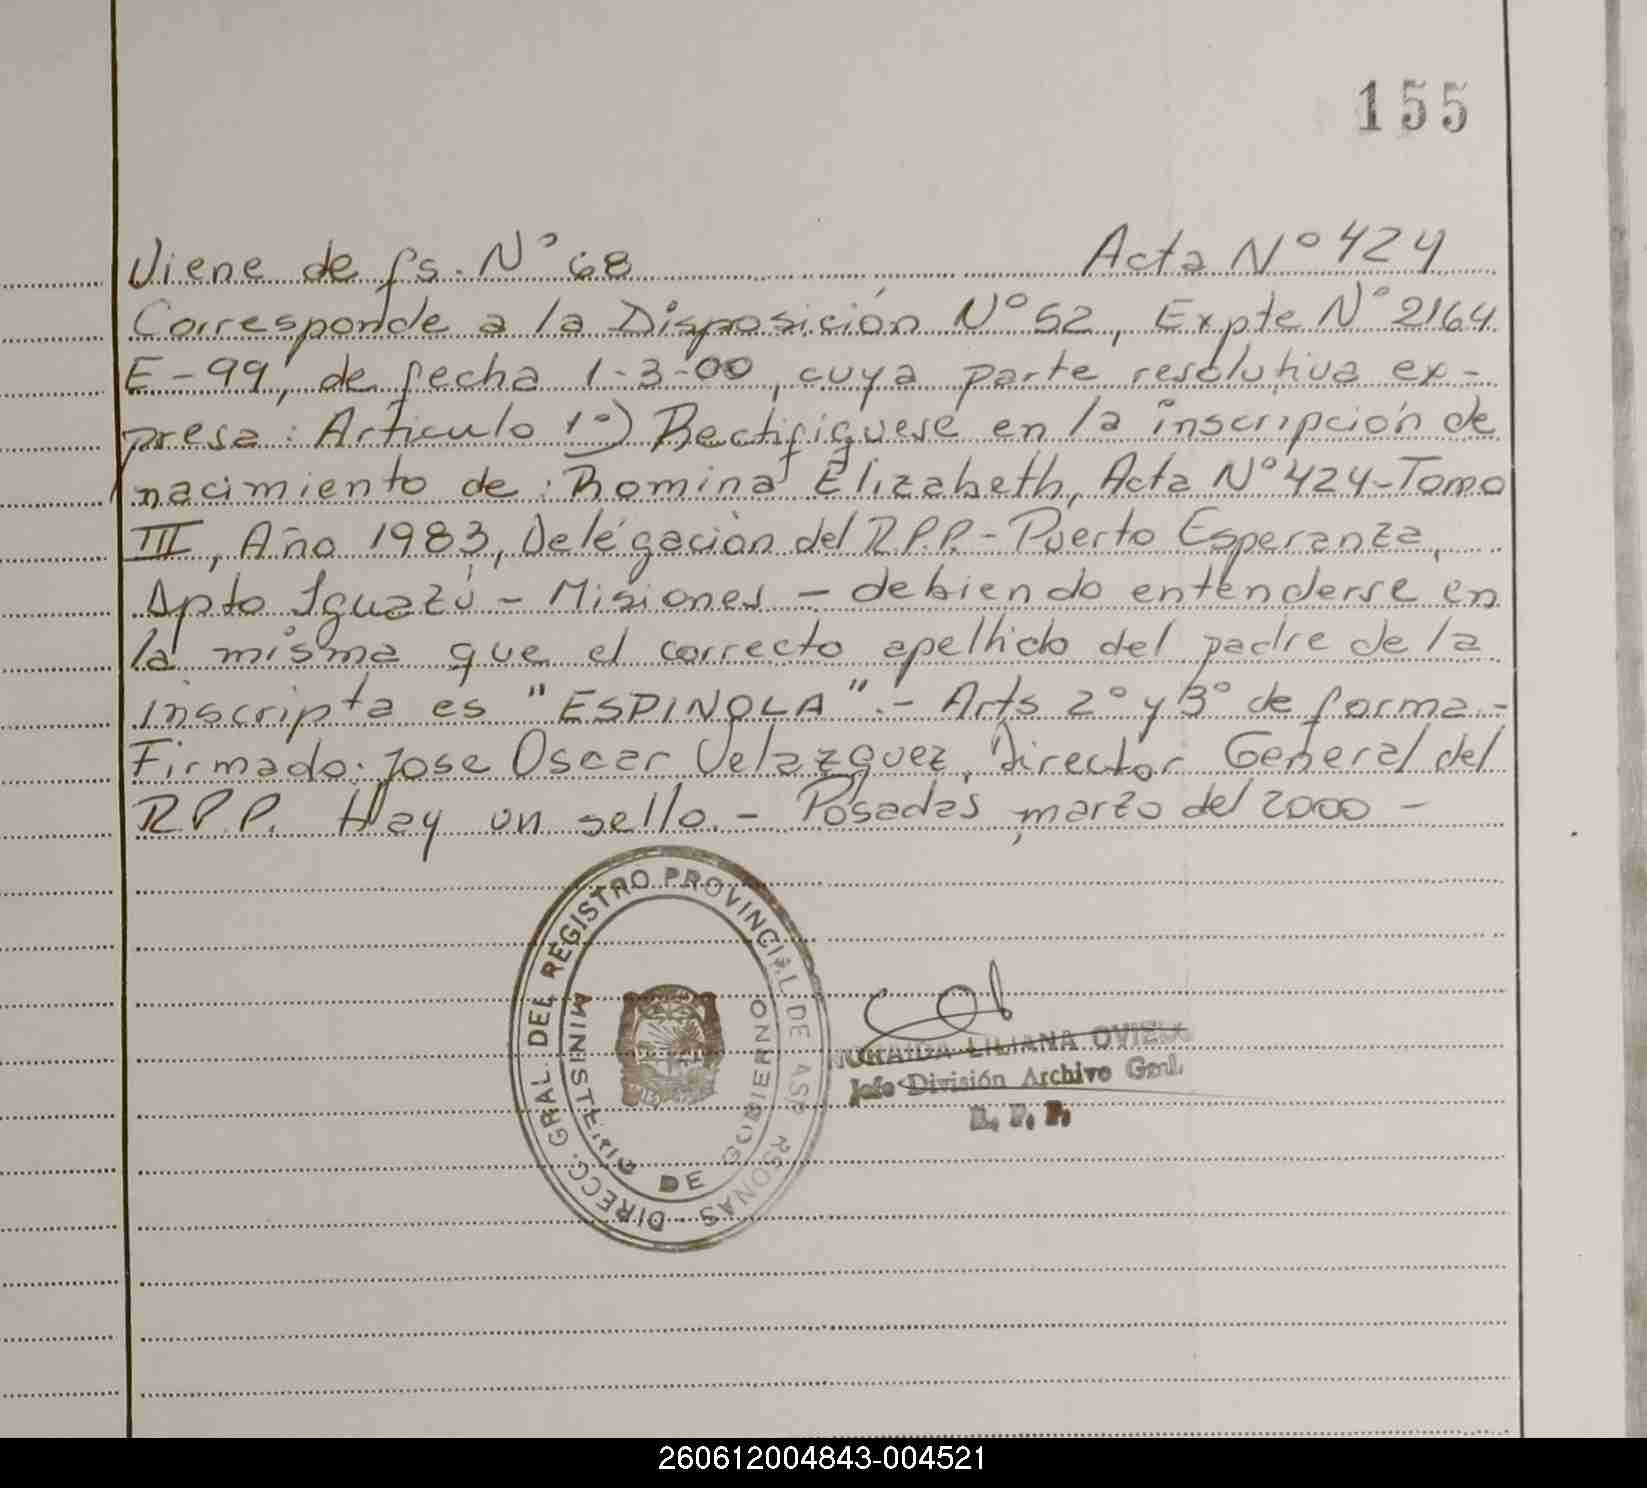 155
Viene de fs. N° 68 Acta N° 424
Corresponde a la Disposición N° 52, Expte N° 2164
E-99, de fecha 1-3-00, cuya parte resolutiva ex-
presa: Articulo 1°) Rectifiquese en la inscripción de
nacimiento de: Romina Elizabeth, Acta N° 424-Tomo
III, Año 1983, Delegación del R.P.P.- Puerto Esperanza,
Dpto Iguazú - Misiones - debiendo entenderse en
la misma que el correcto apellido del padre de la
inscripta es "ESPINOLA".- Arts 2° y 3° de forma.-
Firmado: Jose Oscar Velazquez, Director General del
R.P.P. Hay un sello.- Posadas, marzo del 2000 -
DIRECC. GRAL. DEL REGISTRO PROVINCIAL DE LAS PERSONAS
MINISTERIO DE GOBIERNO
LILIANA OVIEDO
Jefe División Archivo Gral.
R. P. P.
260612004843-004521